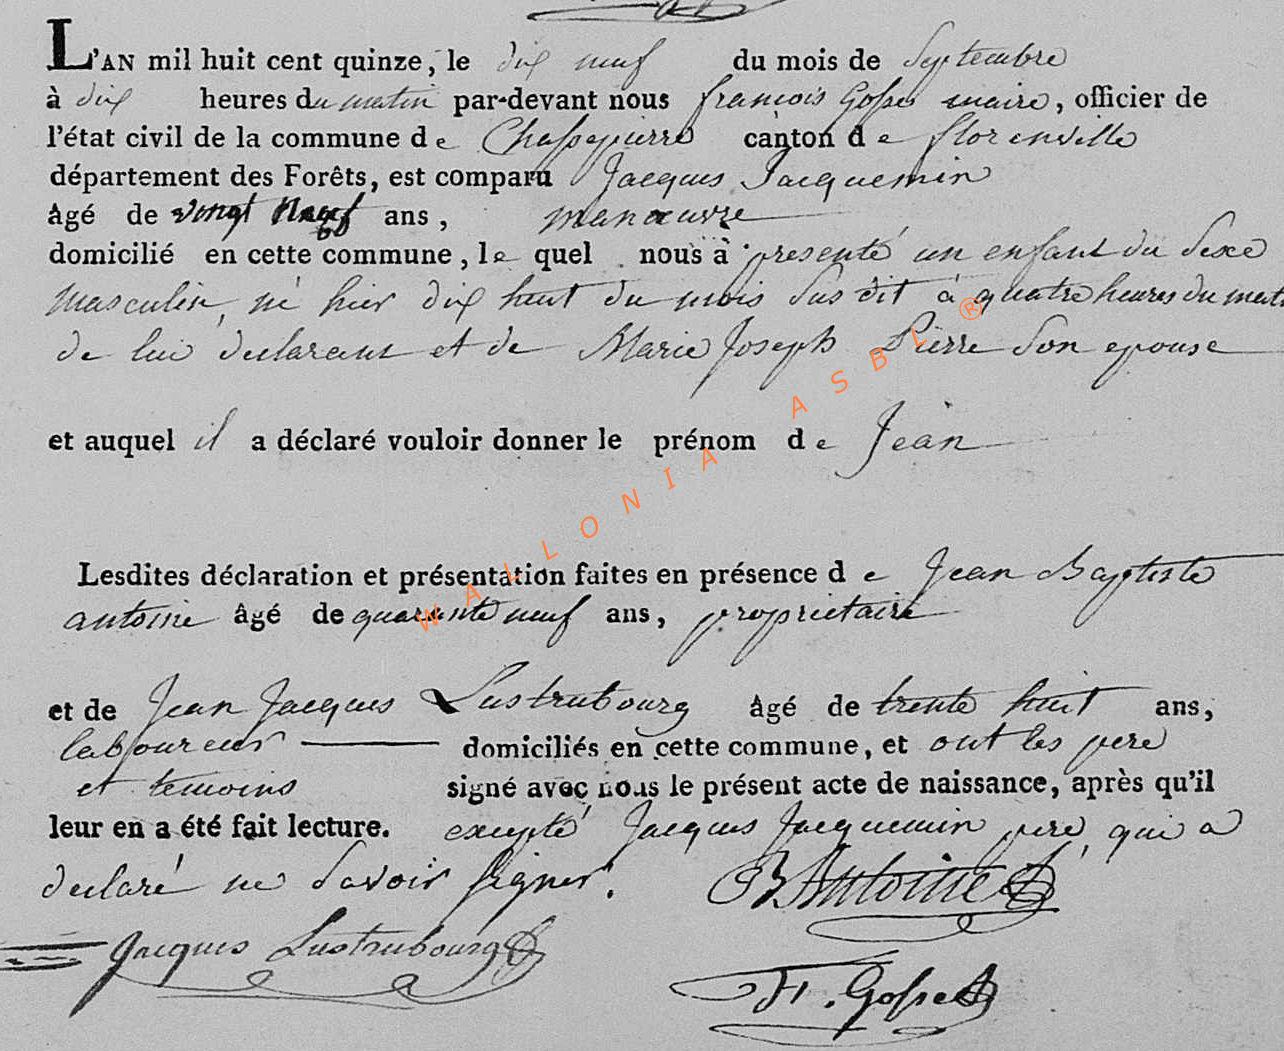 L'AN mil huit cent quinze, le dix neuf du mois de Septembre
à dix heures du matin par-devant nous francois Gosse maire, officier de
l'état civil de la commune de Chassepierre canton de florenville
département des Forêts, est comparu Jacques Jacquemin
âgé de vingt neuf ans, manœuvre
domicilié en cette commune, le quel nous à presenté un enfant du Sexe
masculin, né hier dix huit du mois Susdit à quatre heures du matin
de lui declarant et de Marie Joseph Pierre Son epouse
et auquel il a déclaré vouloir donner le prénom de Jean
Lesdites déclaration et présentation faites en présence de Jean Baptiste
antoine âgé de quarante neuf ans, proprietaire
et de Jean Jacques Lustrubourg âgé de trente huit ans,
laboureur domiciliés en cette commune, et ont les pere
et temoins signé avec nous le présent acte de naissance, après qu'il
leur en a été fait lecture. excepté Jacques Jacquemin pere, qui a
declaré ne Savoir Signer.
B Antoine
Jacques Lustrubourg
F. Gosse
WALLONIA ASBL ®